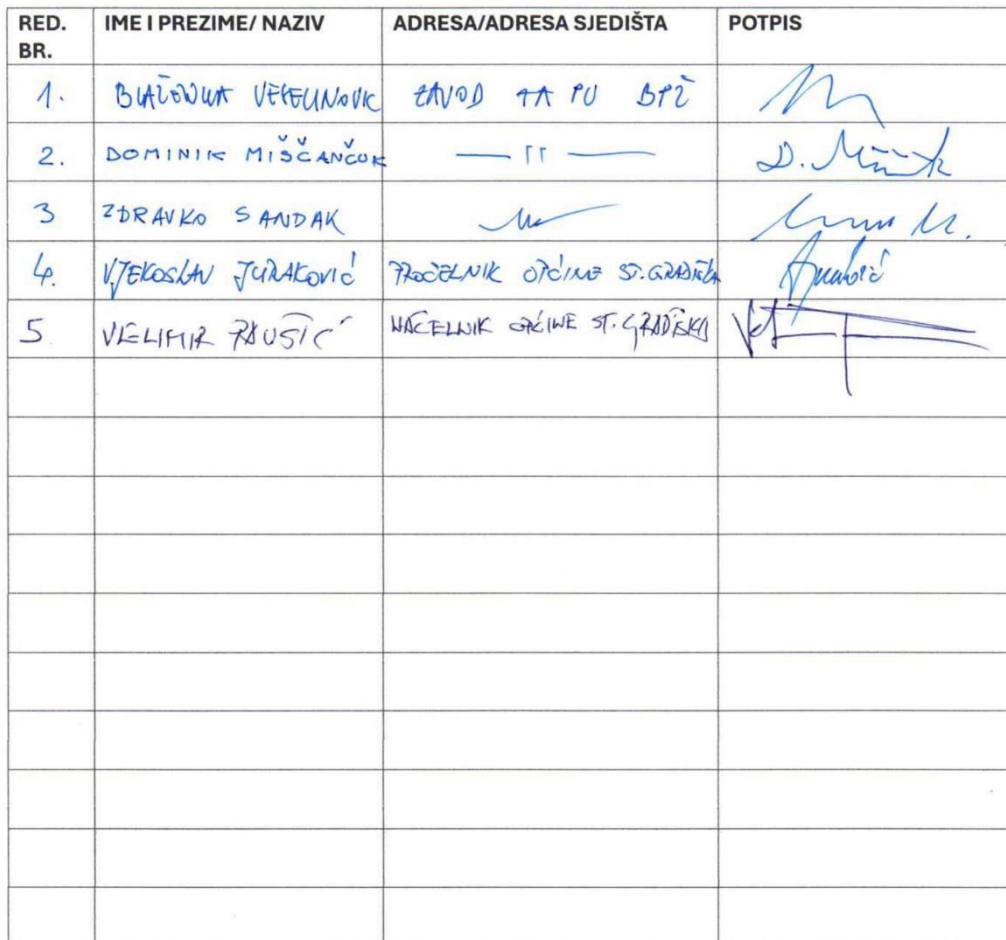 RED. BR. IME I PREZIME/ NAZIV ADRESA/ADRESA SJEDIŠTA POTPIS
1. BLAŽENKA VESELINOVIĆ ZAVOD ZA PU BPŽ
2. DOMINIK MIŠČANČUK — 11 — D.
3 ZDRAVKO SANDAK
4. VJEKOSLAV JURAKOVIĆ PROČELNIK OPĆINE ST. GRADIŠKA
5 VELIMIR PAUŠIĆ NAČELNIK OPĆINE ST. GRADIŠKA